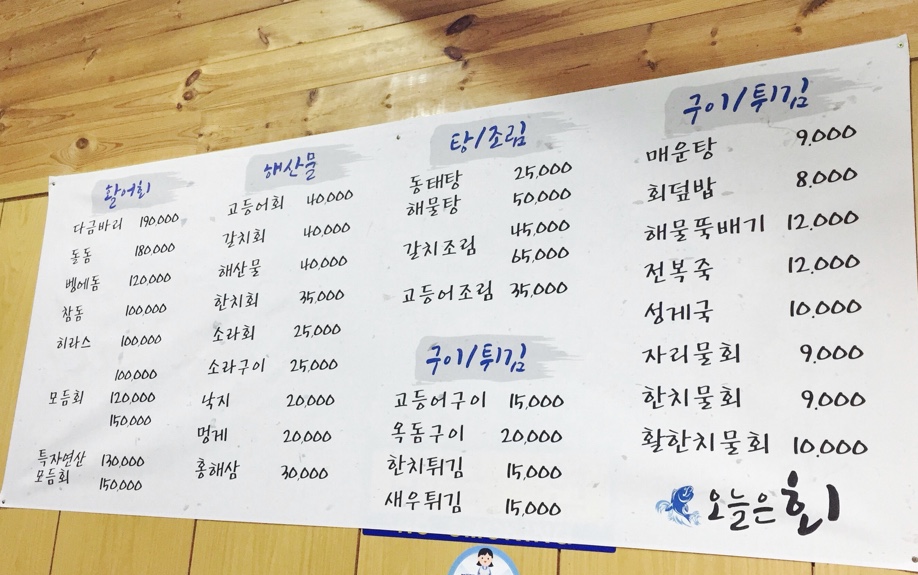 활어회
다금바리 190,000
돌돔 180,000
벵에돔 120,000
참돔 100,000
히라스 100,000
100,000
모듬회 120,000
150,000
특자연산 130,000
모듬회 150,000
해산물
고등어회 40,000
갈치회 40,000
해산물 40,000
한치회 35,000
소라회 25,000
소라구이 25,000
낙지 20,000
멍게 20,000
홍해삼 30,000
탕/조림
동태탕 25,000
해물탕 50,000
45,000
갈치조림
65,000
고등어조림 35,000
구이/튀김
고등어구이 15,000
옥돔구이 20,000
한치튀김 15,000
새우튀김 15,000
구이/튀김
매운탕 9,000
회덮밥 8,000
해물뚝배기 12,000
전복죽 12,000
성게국 10,000
자리물회 9,000
한치물회 9,000
활한치물회 10,000
오늘은회